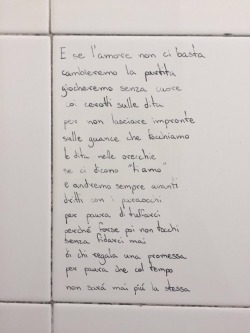 E se l'amore non ci basta
cambieremo la partita
giocheremo senza cuore
coi cerotti sulle dita
per non lasciare impronte
sulle guance che baciamo
le dita nelle orecchie
se ci dicono "ti amo"
e andremo sempre avanti
dritti con i paraocchi
per paura di tuffarci
perché forse poi non tocchi
senza fidarci mai
di chi regala una promessa
per paura che col tempo
non sarà mai più la stessa